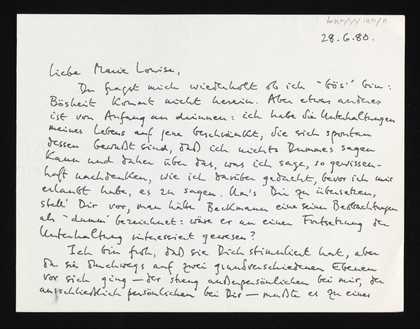 28.6.80.
Liebe Marie Louise,
Du fragst mich wiederholt ob ich "bös" bin:
Bösheit kommt nicht herein. Aber etwas anderes
ist von Anfang an drinnen: ich habe die Unterhaltungen
meines Lebens auf jene beschränkt, die sich spontan
dessen bewußt sind, daß ich nichts Dummes sagen
kann und daher über das, was ich sage, so gewissen-
haft nachdenken, wie ich darüber gedacht, bevor ich mir
erlaubt habe, es zu sagen. Um's Dir zu übersetzen,
stell' Dir vor, man hätte Beckmann eine seiner Beobachtungen
als "dumm" bezeichnet: wäre er an einer Fortsetzung der
Unterhaltung interessiert gewesen?
Ich bin froh, daß sie Dich stimuliert hat, aber
da sie durchwegs auf zwei grundverschiedenen Ebenen
vor sich ging — der streng außerpersönlichen bei mir, der
ausschließlich persönlichen bei Dir — mußte es zu einer